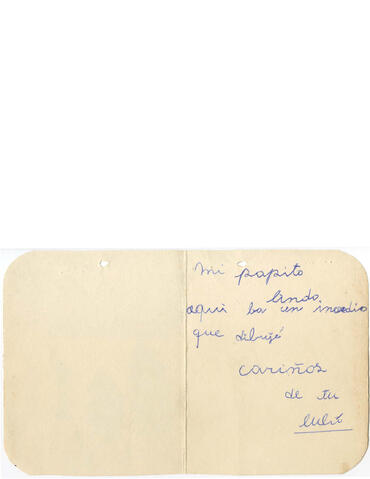 mi papito
lindo
aqui ba un insendio
que dibujé
cariños
de tu